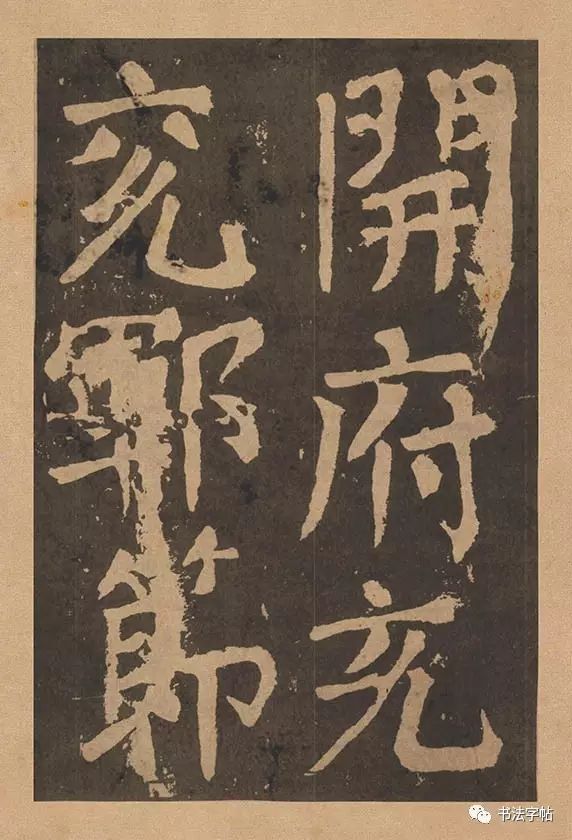 開府充
兗鄆節
书法字帖